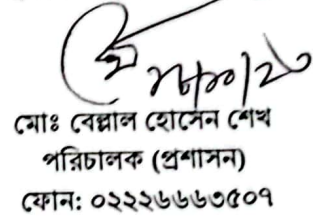 মোঃ বেল্লাল হোসেন শেখ
পরিচালক (প্রশাসন)
ফোন: ০২২২৬৬৬৩৫০৭